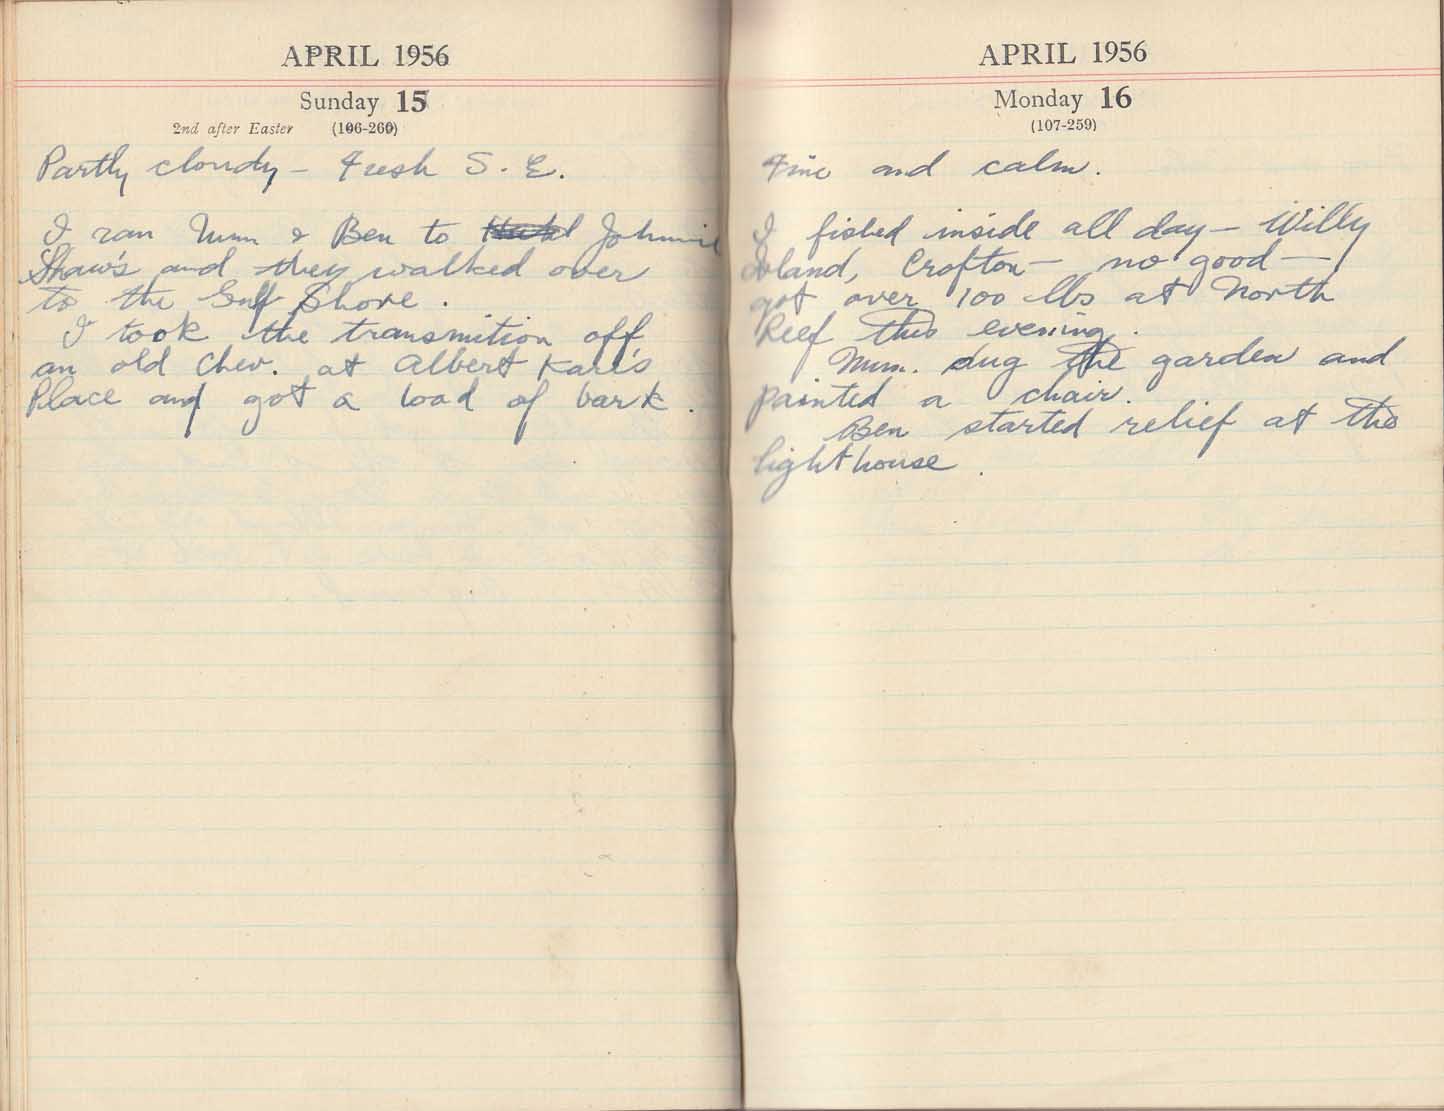 APRIL 1956
Sunday 15
2nd after Easter (106-260)
Partly cloudy – Fresh S. E.
I ran Mum & Ben to Johnnie
Shaw's and they walked over
to the Gulf Shore.
I took the transmition off
an old Chev. at Albert Karl's
Place and got a load of bark.
APRIL 1956
Monday 16
(107-259)
Fine and calm.
I fished inside all day – Willy
Island, Crofton – no good –
got over 100 lbs at North
Reef this evening.
Mum. dug the garden and
painted a chair.
Ben started relief at the
lighthouse.